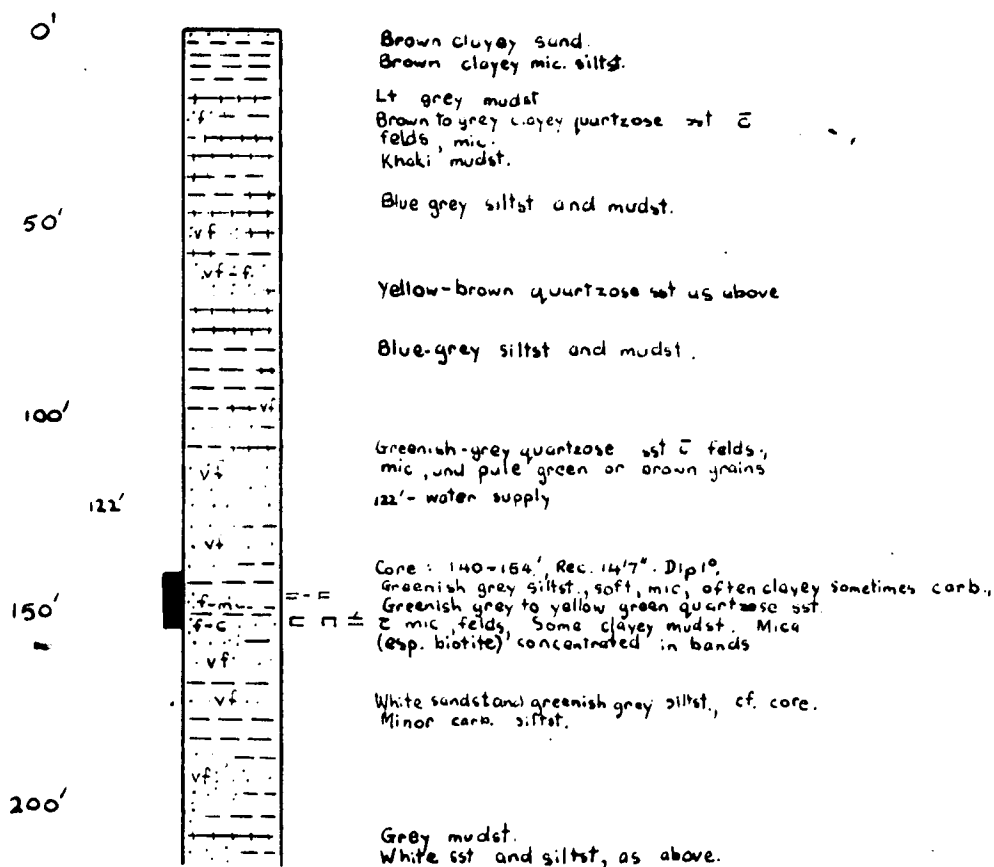 0'
Brown clayey sand.
Brown clayey mic. siltst.
Lt grey mudst
f
Brown to grey clayey quartzose sst c̄
felds, mic.
Khaki mudst.
Blue grey siltst and mudst.
50'
vf
vf-f
Yellow-brown quartzose sst as above
Blue-grey siltst and mudst.
100'
vf
Greenish-grey quartzose sst c̄ felds.,
vf
mic, and pale green or brown grains
122'
122'- water supply
vf
Core: 140-154', Rec. 14'7". Dip 1°.
Greenish grey siltst., soft, mic, often clayey sometimes carb.,
f-m
150'
Greenish grey to yellow green quartzose sst.
f-c
c̄ mic, felds, Some clayey mudst. Mica
(esp. biotite) concentrated in bands
vf
vf
White sandst and greenish grey siltst., cf. core.
Minor carb. siltst.
vf
200'
Grey mudst.
White sst and siltst, as above.